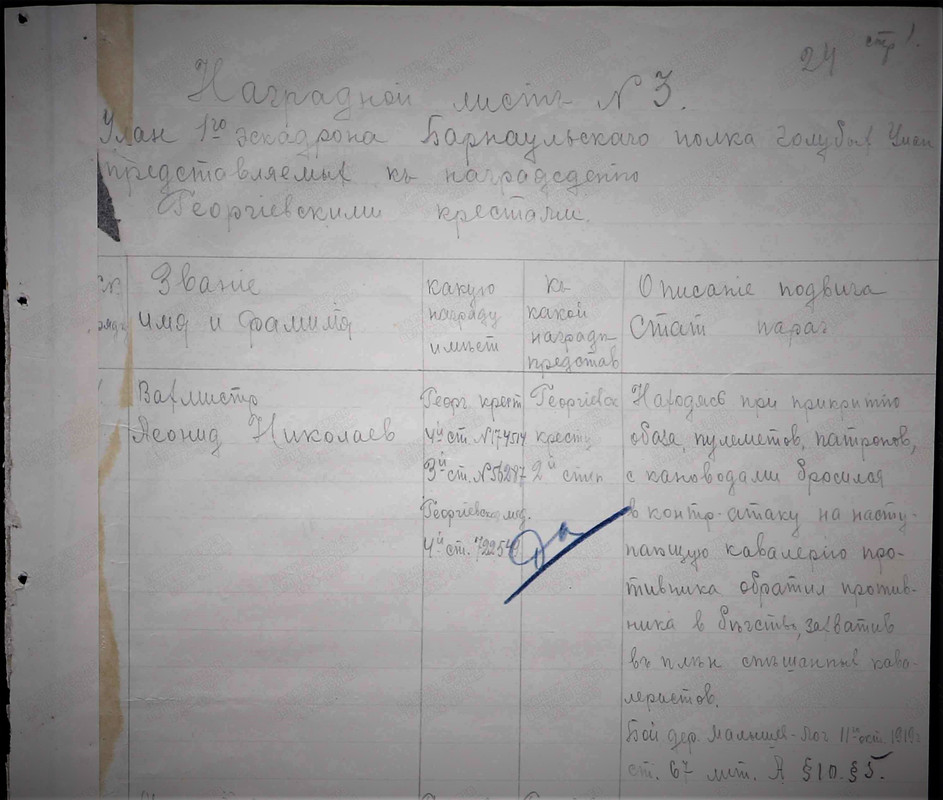 24 стр 1.
Наградной листъ N 3.
Улан 1го эскадрона Барнаульскаго полка голубых Улан
представляемых къ награжденію
Георгіевскими крестами.
Званіе
имя и фамилія
какую
награду
имѣет
Къ
какой
наградѣ
представ
Описаніе подвига
Стат параг
Вахмистр
Леонид Николаев
Георг. крест
4й ст N174514
3й ст. N56297
Георгіевск. мед.
4й ст.
Георгіевск
кресту
2й степ
да
Находясь при прикрытіи
обоза, пулеметов, патронов,
с кановодами бросился
в контр-атаку на насту-
пающую кавалерію про-
тивника обратил против-
ника в бѣгство, захватив
въ плѣн спѣшанных кава-
леристов.
Бой дер. 1919г
ст. 67 лит. А §10. §5.